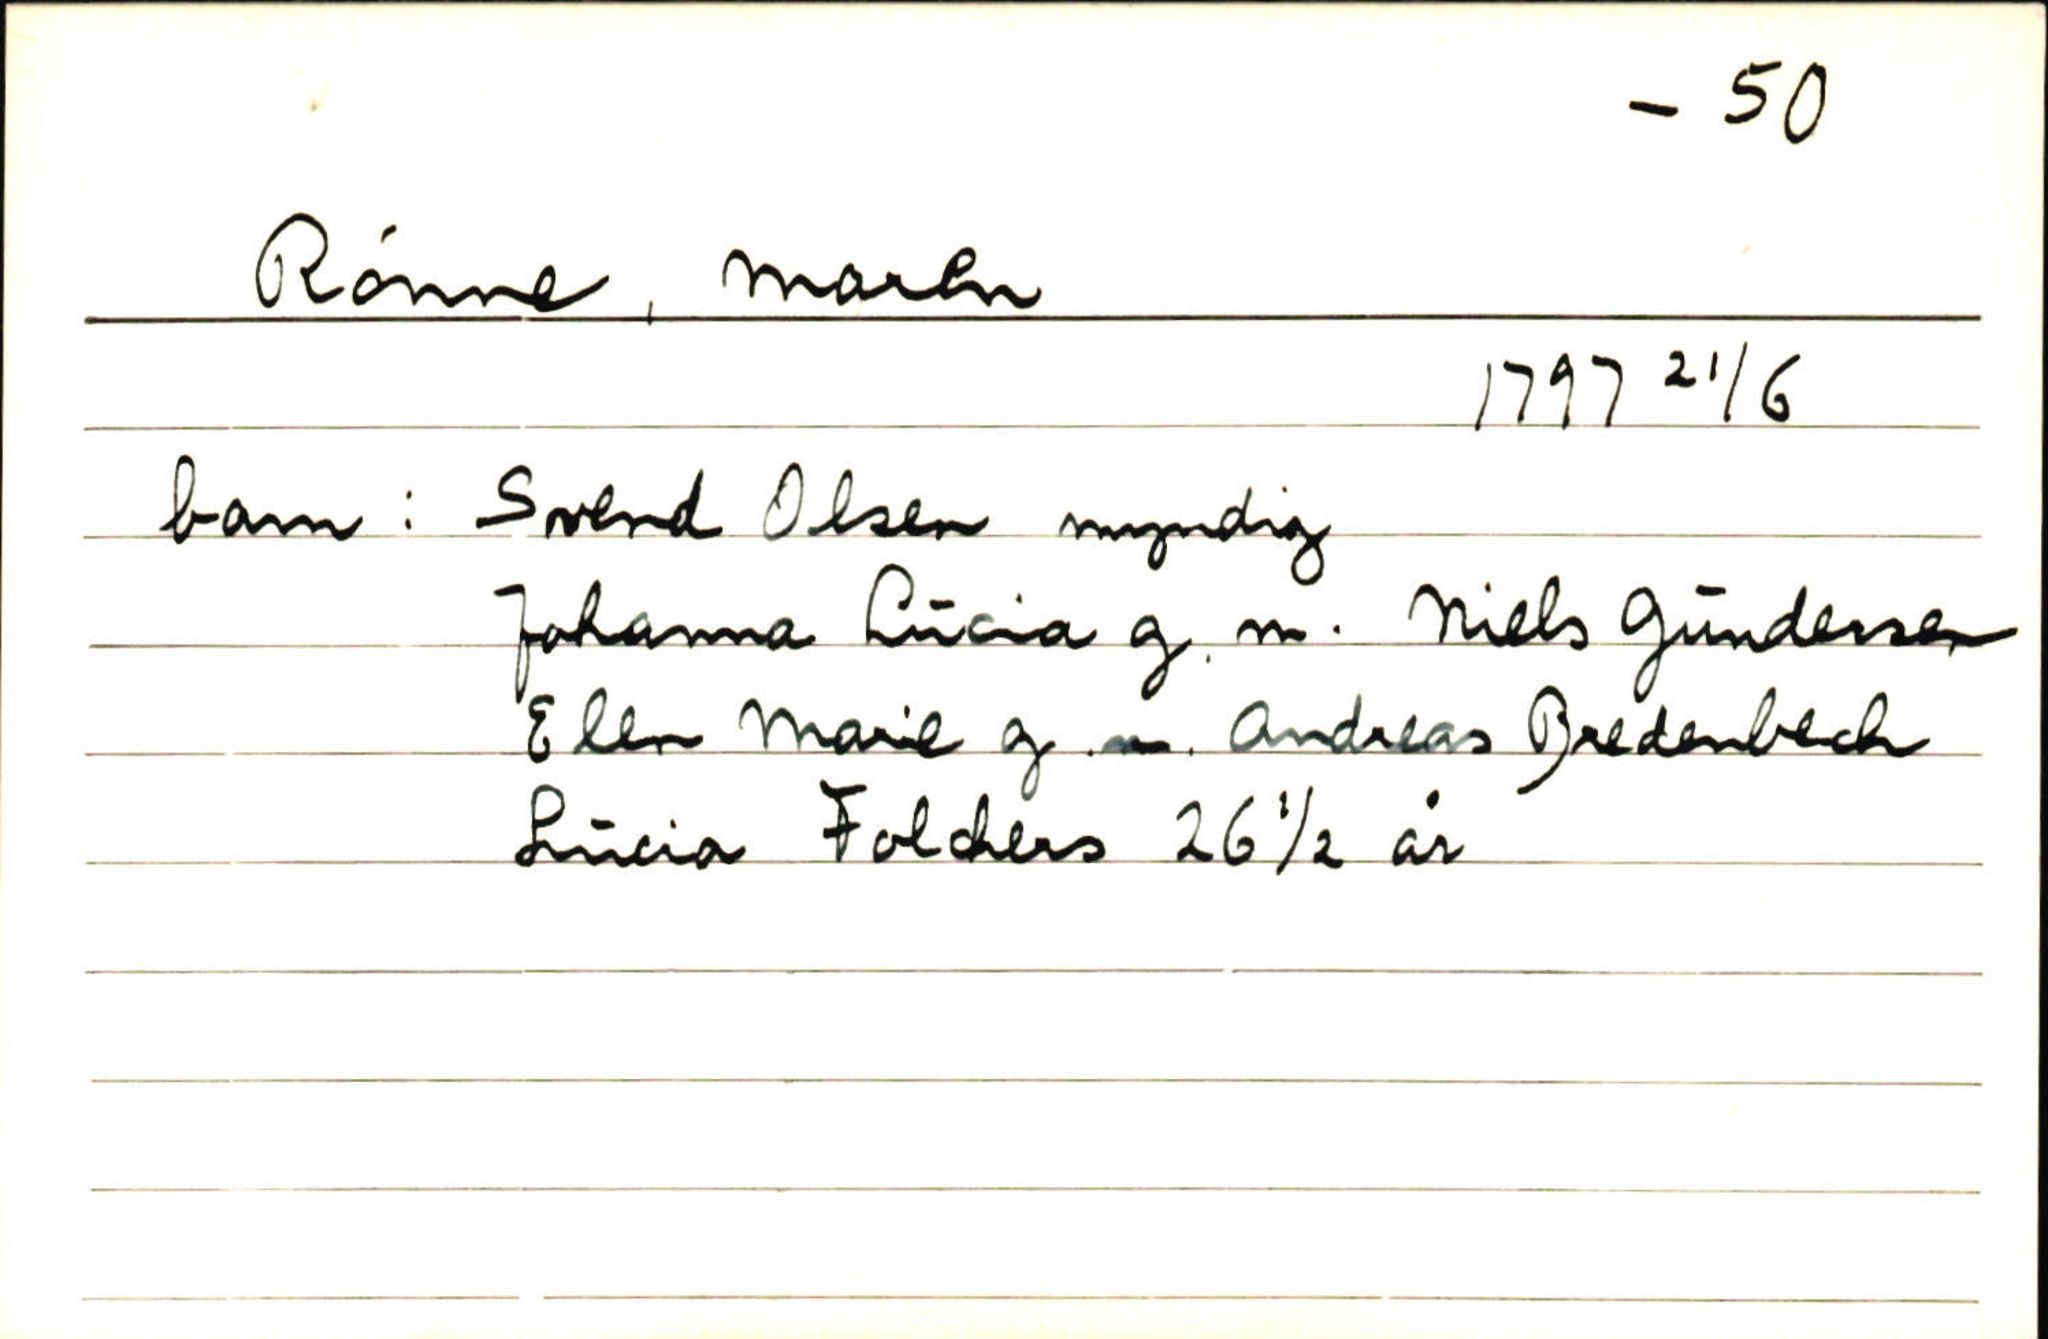 - 50
Rönne, Maren
1797 21/6
barn : Svend Olsen myndig
Johanna Lucia g. m. Niels Gundersen
Elen Marie g. m. Andreas Bredenbech
Lucia Folchers 26 1/2 år